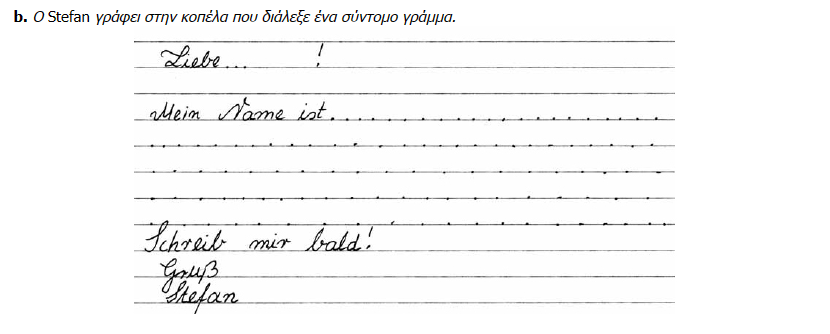 b. Ο Stefan γράφει στην κοπέλα που διάλεξε ένα σύντομο γράμμα.
Liebe... !
Mein Name ist....................
....................
....................
....................
....................
Schreib mir bald!
Gruß
Stefan